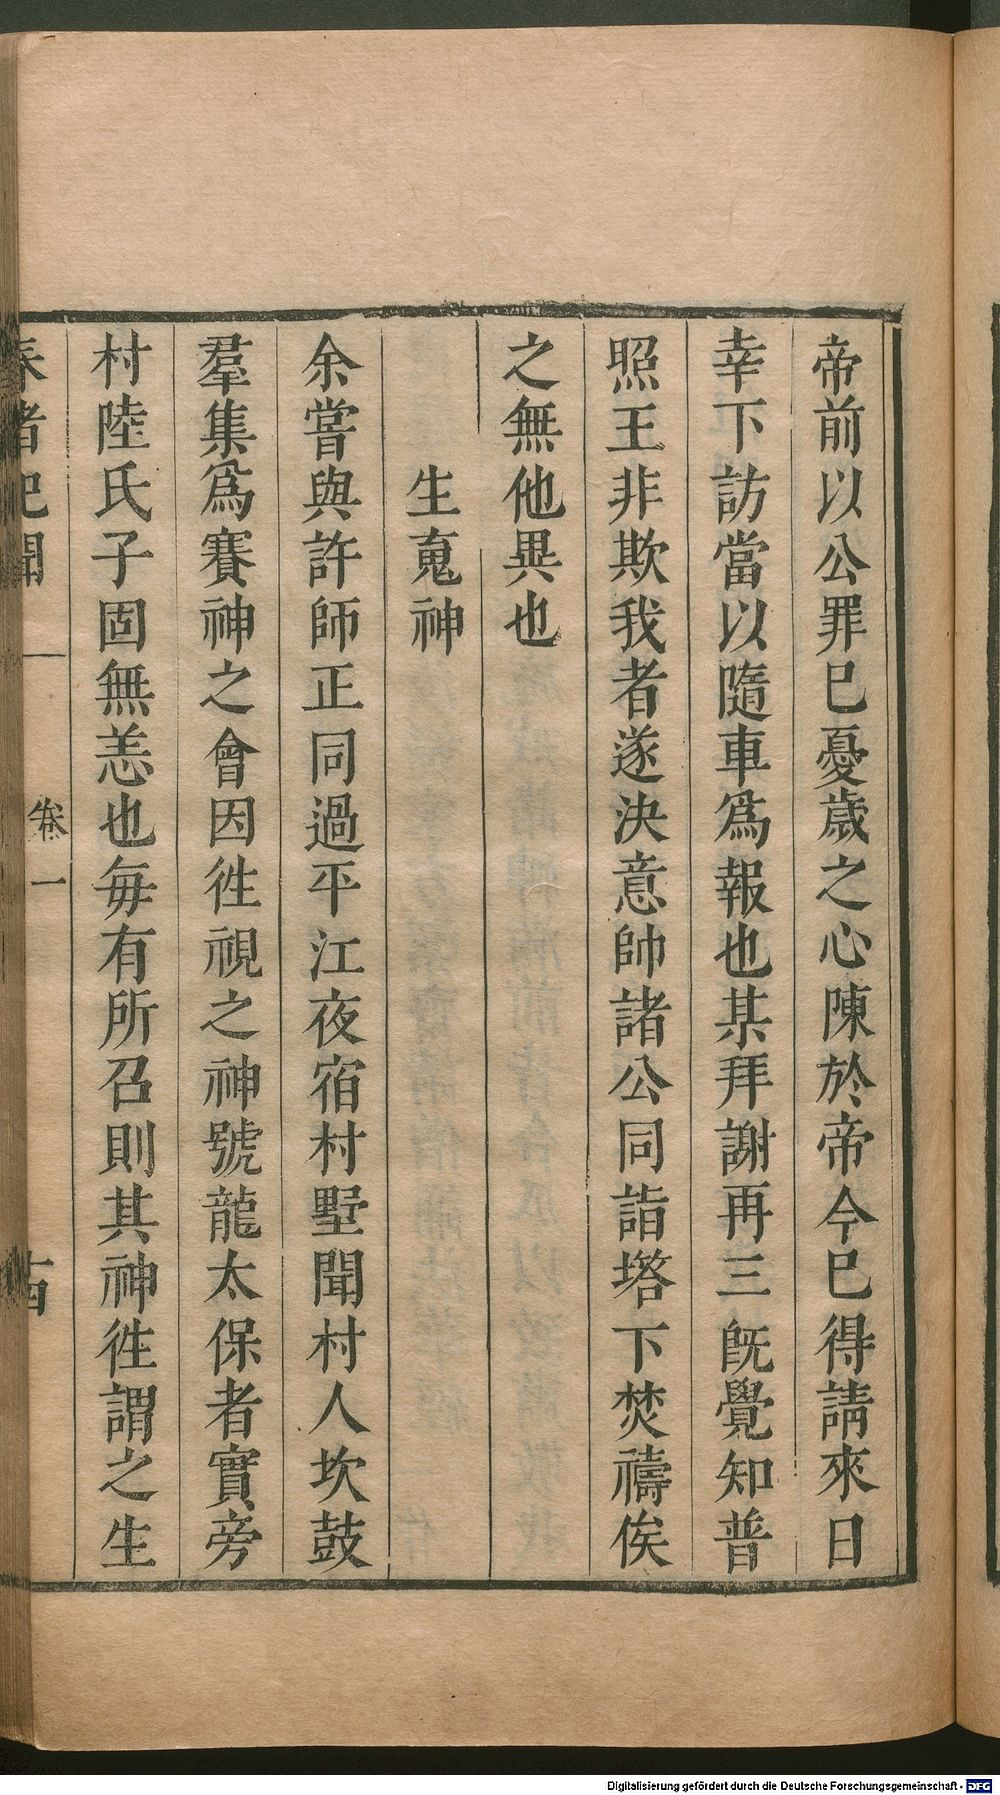 帝前以公罪巳憂歲之心陳於帝今巳得請來日
幸下訪當以隨車爲報也某拜謝再三旣覺知普
照王非欺我者遂決意帥諸公同詣塔下焚禱俟
之無他異也
生䰟神
余嘗與許師正同過平江夜宿村墅聞村人坎鼓
羣集爲賽神之會因徃視之神號龍太保者實旁
村陸氏子固無恙也每有所召則其神徃謂之生
春渚紀聞 卷一
Digitalisierung gefördert durch die Deutsche Forschungsgemeinschaft - DFG